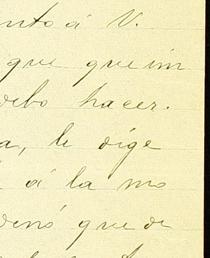 nto á V.
que que im
debo hacer.
a, le dige
á la mo
denó que de